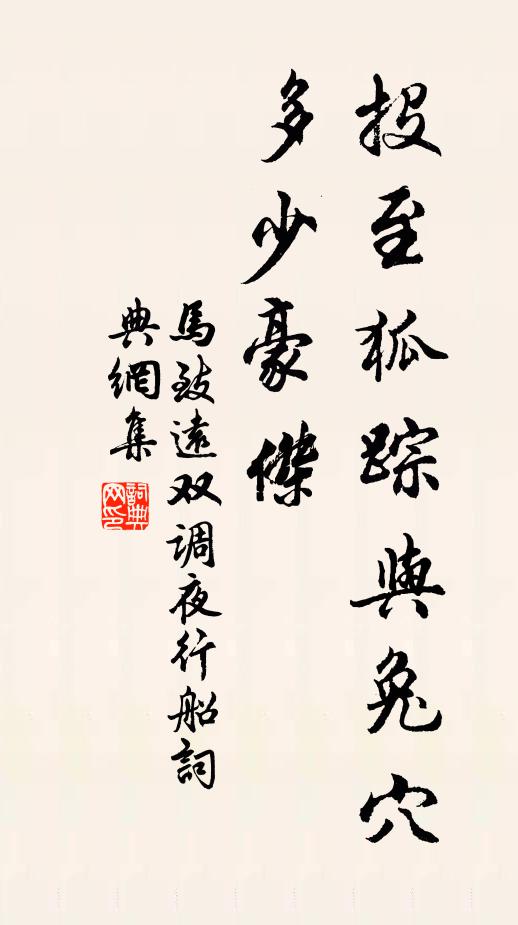 投至狐踪與兔穴
多少豪傑
馬致遠双调夜行船詞
典網集
詞典
网印